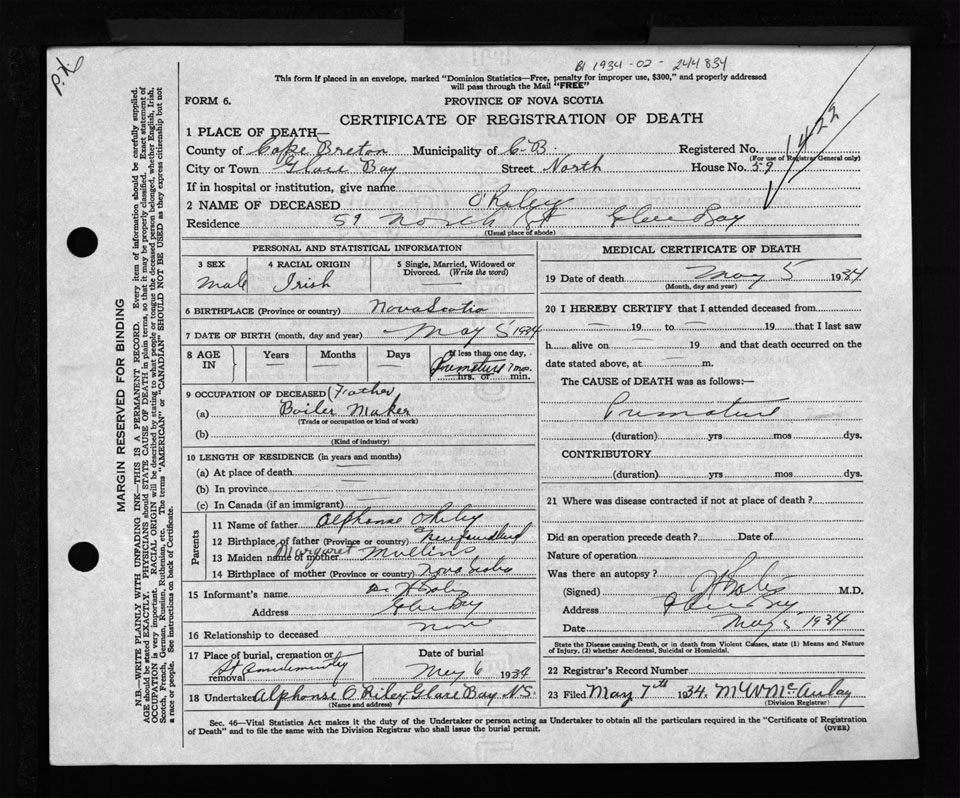 P.X.
BI 1934-02-244834
This form if placed in an envelope, marked "Dominion Statistics—Free, penalty for improper use, $300," and properly addressed
will pass through the Mail "FREE"
FORM 6. PROVINCE OF NOVA SCOTIA
CERTIFICATE OF REGISTRATION OF DEATH
1422
1 PLACE OF DEATH—
County of Cape Breton Municipality of C.B. Registered No.
(For use of Registrar General only)
City or Town Glace Bay Street North House No. 59
If in hospital or institution, give name
2 NAME OF DECEASED O'Riley
Residence 59 North St Glace Bay
(Usual place of abode)
PERSONAL AND STATISTICAL INFORMATION
3 SEX 4 RACIAL ORIGIN 5 Single, Married, Widowed or Divorced. (Write the word)
Male Irish —
6 BIRTHPLACE (Province or country) Nova Scotia
7 DATE OF BIRTH (month, day and year) May 5 1934
8 AGE IN Years Months Days If less than one day, hrs. or min.
— — — Premature 7 mos.
9 OCCUPATION OF DECEASED (Father)
(a) Boiler Maker
(Trade or occupation or kind of work)
(b)
(Kind of industry)
10 LENGTH OF RESIDENCE (in years and months)
(a) At place of death
(b) In province
(c) In Canada (if an immigrant)
Parents
11 Name of father Alphonse O'Riley
12 Birthplace of father (Province or country) Newfoundland
13 Maiden name of mother Margaret Mullins
14 Birthplace of mother (Province or country) Nova Scotia
15 Informant's name Dr
Address Glace Bay
16 Relationship to deceased None
17 Place of burial, cremation or removal Date of burial
St May 6 1934
18 Undertaker Alphonse O'Riley Glace Bay N.S.
(Name and address)
MEDICAL CERTIFICATE OF DEATH
19 Date of death May 5 1934
(Month, day and year)
20 I HEREBY CERTIFY that I attended deceased from
— 19 to — 19 that I last saw
h alive on — 19 and that death occurred on the
date stated above, at — m.
The CAUSE of DEATH was as follows:—
Premature
(duration) yrs mos dys.
CONTRIBUTORY
(duration) yrs mos dys.
21 Where was disease contracted if not at place of death?
Did an operation precede death? Date of
Nature of operation
Was there an autopsy?
(Signed) M.D.
Address Glace Bay
Date May 5 1934
State the Disease causing Death, or in death from Violent Causes, state (1) Means and Nature
of Injury, (2) whether Accidental, Suicidal or Homicidal.
22 Registrar's Record Number
23 Filed May 7th 1934. McAulay
(Division Registrar)
Sec. 46—Vital Statistics Act makes it the duty of the Undertaker or person acting as Undertaker to obtain all the particulars required in the "Certificate of Registration
of Death" and to file the same with the Division Registrar who shall issue the burial permit. (OVER)
MARGIN RESERVED FOR BINDING
N.B.—WRITE PLAINLY WITH UNFADING INK—THIS IS A PERMANENT RECORD. Every item of information should be carefully supplied.
AGE should be stated EXACTLY. PHYSICIANS should STATE CAUSE OF DEATH in plain terms, so that it may be properly classified. Exact statement of
OCCUPATION is very important. RACIAL ORIGIN will be described by stating to what people or tongue the deceased person belonged, whether English, Irish,
Scotch, French, German, Russian, Ruthenian, etc. The terms "AMERICAN" or "CANADIAN" SHOULD NOT BE USED as they express citizenship but not
a race or people. See instructions on back of Certificate.